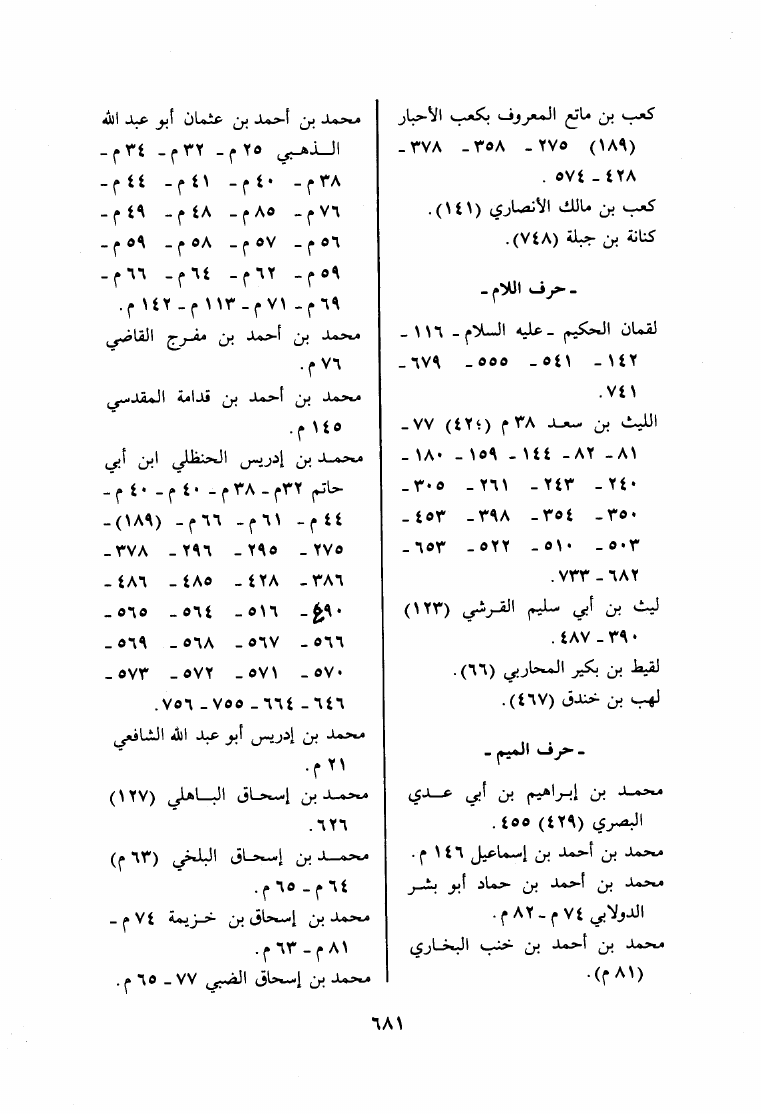 كعب بن ماتع المعروف بكعب الأحبار
(١٨٩) ٢٧٥ - ٣٥٨ - ٣٧٨ -
٤٢٨ - ٥٧٤ .
كعب بن مالك الأنصاري (١٤١).
كنانة بن جبلة (٧٤٨).
- حرف اللام -
لقمان الحكيم - عليه السلام - ١١٦ -
١٤٢ - ٥٤١ - ٥٥٥ - ٦٧٩ -
٧٤١.
الليث بن سعد ٣٨ م (٤٢؛) ٧٧ -
٨١ - ٨٢ - ١٤٤ - ١٥٩ - ١٨٠ -
٢٤٠ - ٢٤٣ - ٢٦١ - ٣٠٥ -
٣٥٠ - ٣٥٤ - ٣٩٨ - ٤٥٣ -
٥٠٣ - ٥١٠ - ٥٢٢ - ٦٥٣ -
٦٨٢ - ٧٣٣.
ليث بن أبي سليم القرشي (١٢٣)
٣٩٠ - ٤٨٧ .
لقيط بن بكير المحاربي (٦٦).
لهب بن خندق (٤٦٧).
- حرف الميم -
محمد بن إبراهيم بن أبي عدي
البصري (٤٢٩) ٤٥٥ .
محمد بن أحمد بن إسماعيل ١٤٦ م.
محمد بن أحمد بن حماد أبو بشر
الدولابي ٧٤ م - ٨٢ م.
محمد بن أحمد بن خنب البخاري
(٨١ م).
محمد بن أحمد بن عثمان أبو عبد الله
الذهبي ٢٥ م - ٣٢ م - ٣٤ م -
٣٨ م - ٤٠ م - ٤١ م - ٤٤ م -
٧٦ م - ٨٥ م - ٤٨ م - ٤٩ م -
٥٦ م - ٥٧ م - ٥٨ م - ٥٩ م -
٥٩ م - ٦٢ م - ٦٤ م - ٦٦ م -
٦٩ م - ٧١ م - ١١٣ م - ١٤٢ م.
محمد بن أحمد بن مفرج القاضي
٧٦ م.
محمد بن أحمد بن قدامة المقدسي
١٤٥ م.
محمد بن إدريس الحنظلي ابن أبي
حاتم ٣٢م - ٣٨ م - ٤٠ م - ٤٠ م -
٤٤ م - ٦١ م - ٦٦ م - (١٨٩) -
٢٧٥ - ٢٩٥ - ٢٩٦ - ٣٧٨ -
٣٨٦ - ٤٢٨ - ٤٨٥ - ٤٨٦ -
٤٩٠ - ٥١٦ - ٥٦٤ - ٥٦٥ -
٥٦٦ - ٥٦٧ - ٥٦٨ - ٥٦٩ -
٥٧٠ - ٥٧١ - ٥٧٢ - ٥٧٣ -
٦٤٦ - ٦٦٤ - ٧٥٥ - ٧٥٦.
محمد بن إدريس أبو عبد الله الشافعي
٢١ م.
محمد بن إسحاق الباهلي (١٢٧)
٦٢٦.
محمد بن إسحاق البلخي (٦٣ م)
٦٤ م - ٦٥ م.
محمد بن إسحاق بن خزيمة ٧٤ م -
٨١ م - ٦٣ م.
محمد بن إسحاق الضبي ٧٧ - ٦٥ م.
٦٨١